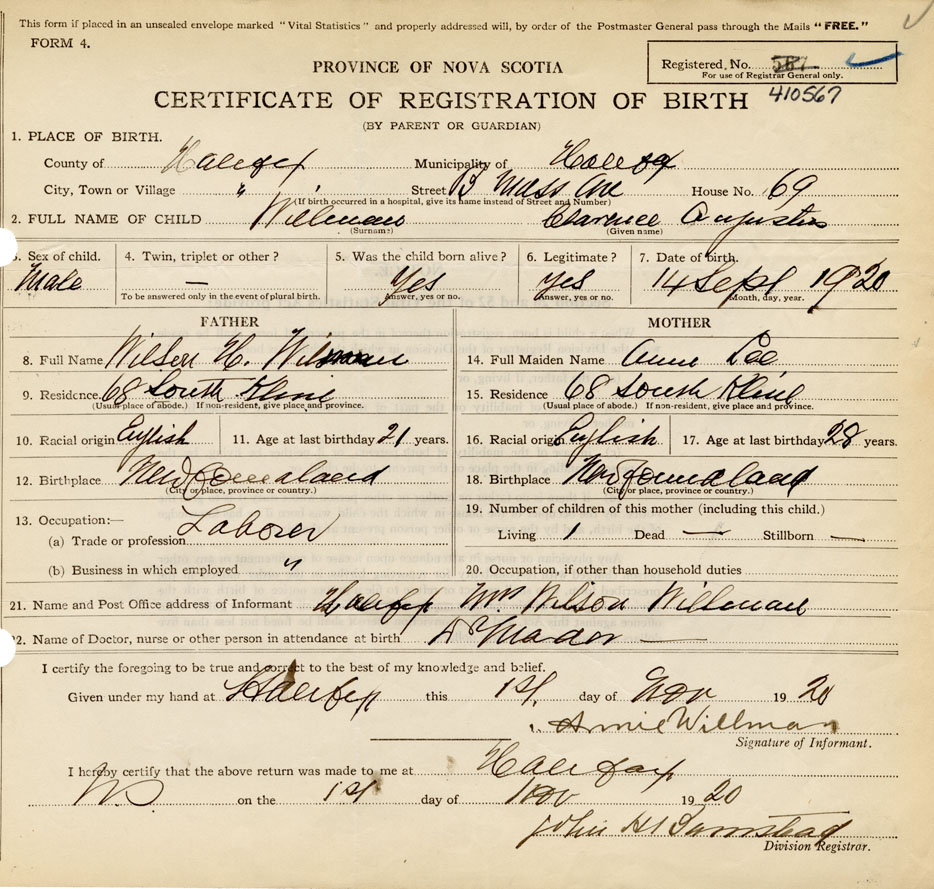 This form if placed in an unsealed envelope marked "Vital Statistics" and properly addressed will, by order of the Postmaster General pass through the Mails "FREE."
FORM 4.
Registered, No.
For use of Registrar General only.
410567
PROVINCE OF NOVA SCOTIA
CERTIFICATE OF REGISTRATION OF BIRTH
(BY PARENT OR GUARDIAN)
1. PLACE OF BIRTH.
County of Halifax Municipality of Halifax
City, Town or Village " Street Mass Ave House No. 69
(If birth occurred in a hospital, give its name instead of Street and Number)
2. FULL NAME OF CHILD Willman Clarence Augustus
(Surname) (Given name)
3. Sex of child. 4. Twin, triplet or other? 5. Was the child born alive? 6. Legitimate? 7. Date of birth.
Male — Yes yes 14 Sept 1920
To be answered only in the event of plural birth. Answer, yes or no. Answer, yes or no. Month, day, year.
FATHER MOTHER
8. Full Name Wilson H. Willman 14. Full Maiden Name Annie Lee
9. Residence 68 South Kline 15. Residence 68 South Kline
(Usual place of abode.) If non-resident, give place and province. (Usual place of abode.) If non-resident, give place and province.
10. Racial origin English 11. Age at last birthday 21 years. 16. Racial origin English 17. Age at last birthday 28 years.
12. Birthplace Newfoundland 18. Birthplace Newfoundland
(City or place, province or country.) (City or place, province or country.)
13. Occupation:— 19. Number of children of this mother (including this child.)
(a) Trade or profession Laborer Living 1 Dead — Stillborn —
(b) Business in which employed " 20. Occupation, if other than household duties
21. Name and Post Office address of Informant Halifax Mrs Wilson Willman
22. Name of Doctor, nurse or other person in attendance at birth Dr Mader
I certify the foregoing to be true and correct to the best of my knowledge and belief.
Given under my hand at Halifax this 1st day of Nov 1920
Annie Willman
Signature of Informant.
I hereby certify that the above return was made to me at Halifax
NS on the 1st day of Nov 1920
John H
Division Registrar.